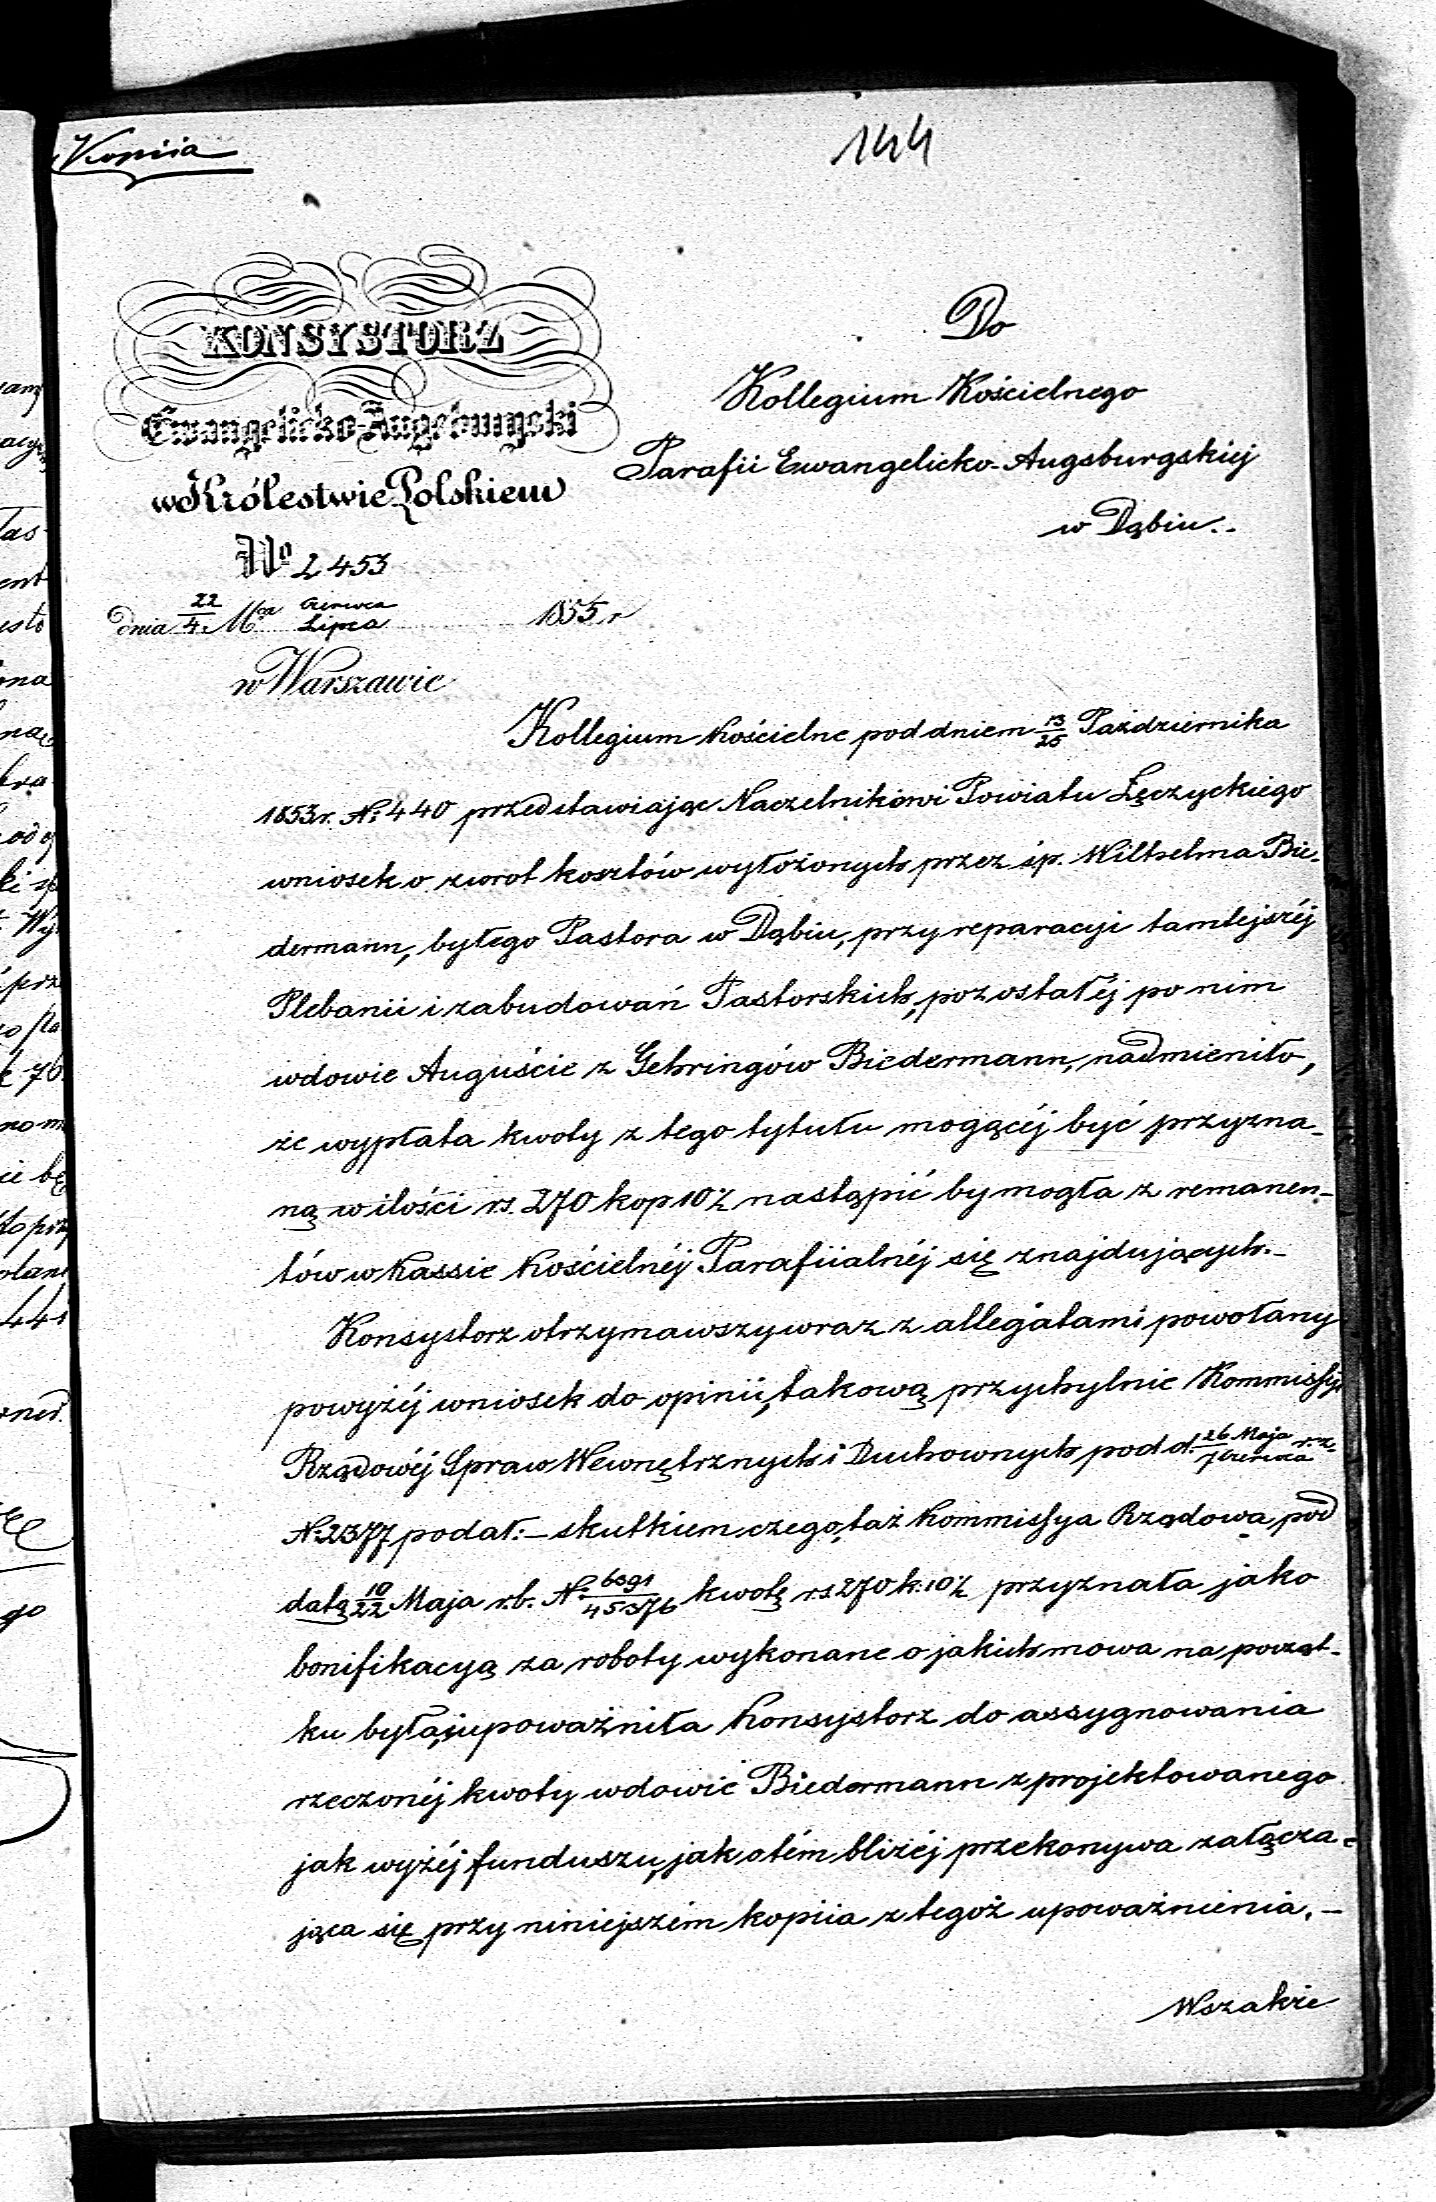 Kopiia
144
KONSYSTORZ
Ewangelicko-Augsburgski
w Królestwie Polskiem
No 2453
dnia 22/4. Mca Czerwca/Lipca 1855 r
w Warszawie
Do
Kollegium Kościelnego
Parafii Ewangelicko-Augsburgskiej
w Dąbiu.-
Kollegium Kościelne pod dniem 13/25 Października
1853 r. No 440 przedstawiając Naczelnikowi Powiatu Łęczyckiego
wniosek o zwrot kosztów wyłożonych przez śp. Wilhelma Bie-
dermann, byłego Pastora w Dąbiu, przy reparacyi tamtejszéj
Plebanii i zabudowań Pastorskich, pozostałéj po nim
wdowie Auguście z Gehringów Biedermann, nadmieniło,
że wypłata kwoty z tego tytułu mogącéj być przyzna-
ną w ilości rs. 270 kop 10½ nastąpić by mogła z remanen-
tów w Kassie Kościelnéj Parafiialnéj się znajdujących.-
Konsystorz otrzymawszy wraz z allegatami powołany
powyżéj wniosek do opinii, takową przychylnie Kommissyi
Rządowéj Spraw Wewnętrznych i Duchownych pod d. 26 Maja/7 Czerwca r. z.
No 2377 podał:- skutkiem czego, taż Kommissya Rządowa pod
datą 10/22 Maja r.b. No 6091/45376 kwotę rs 270 k. 10½ przyznała jako
bonifikacyą za roboty wykonane o jakich mowa na począt-
ku była, i upoważniła Konsystorz do assygnowania
rzeczonéj kwoty wdowie Biedermann z projektowanego
jak wyżéj funduszu, jak o tém bliżéj przekonywa załącza-
jąca się przy niniejszém kopiia z tegoż upoważnienia.-
Wszakże